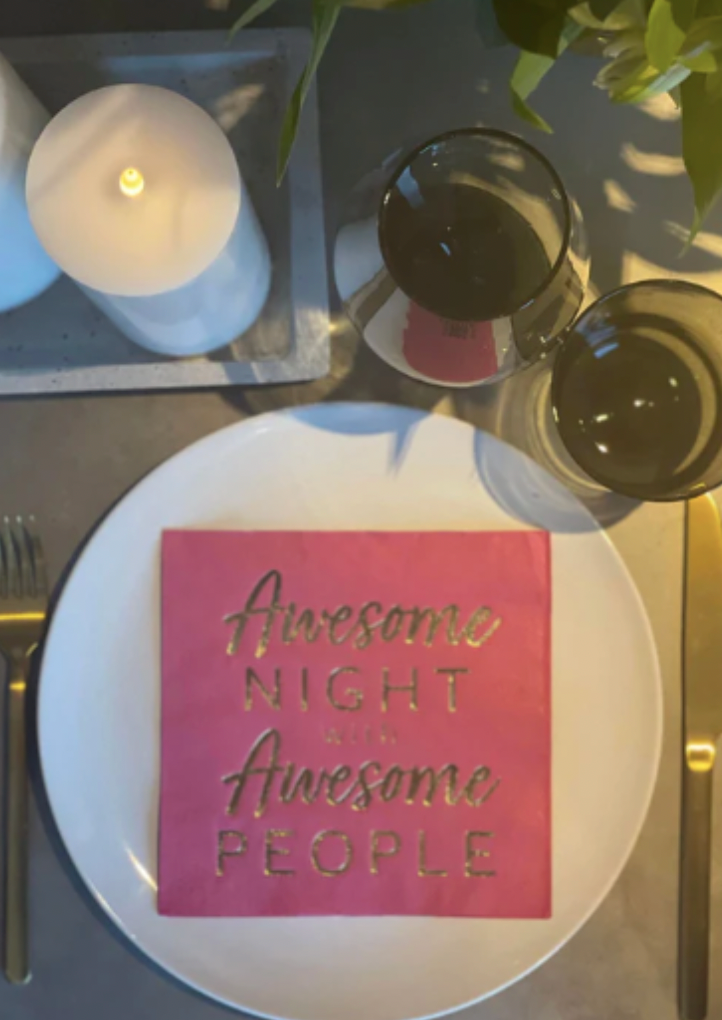 Awesome
NIGHT
WITH
Awesome
PEOPLE